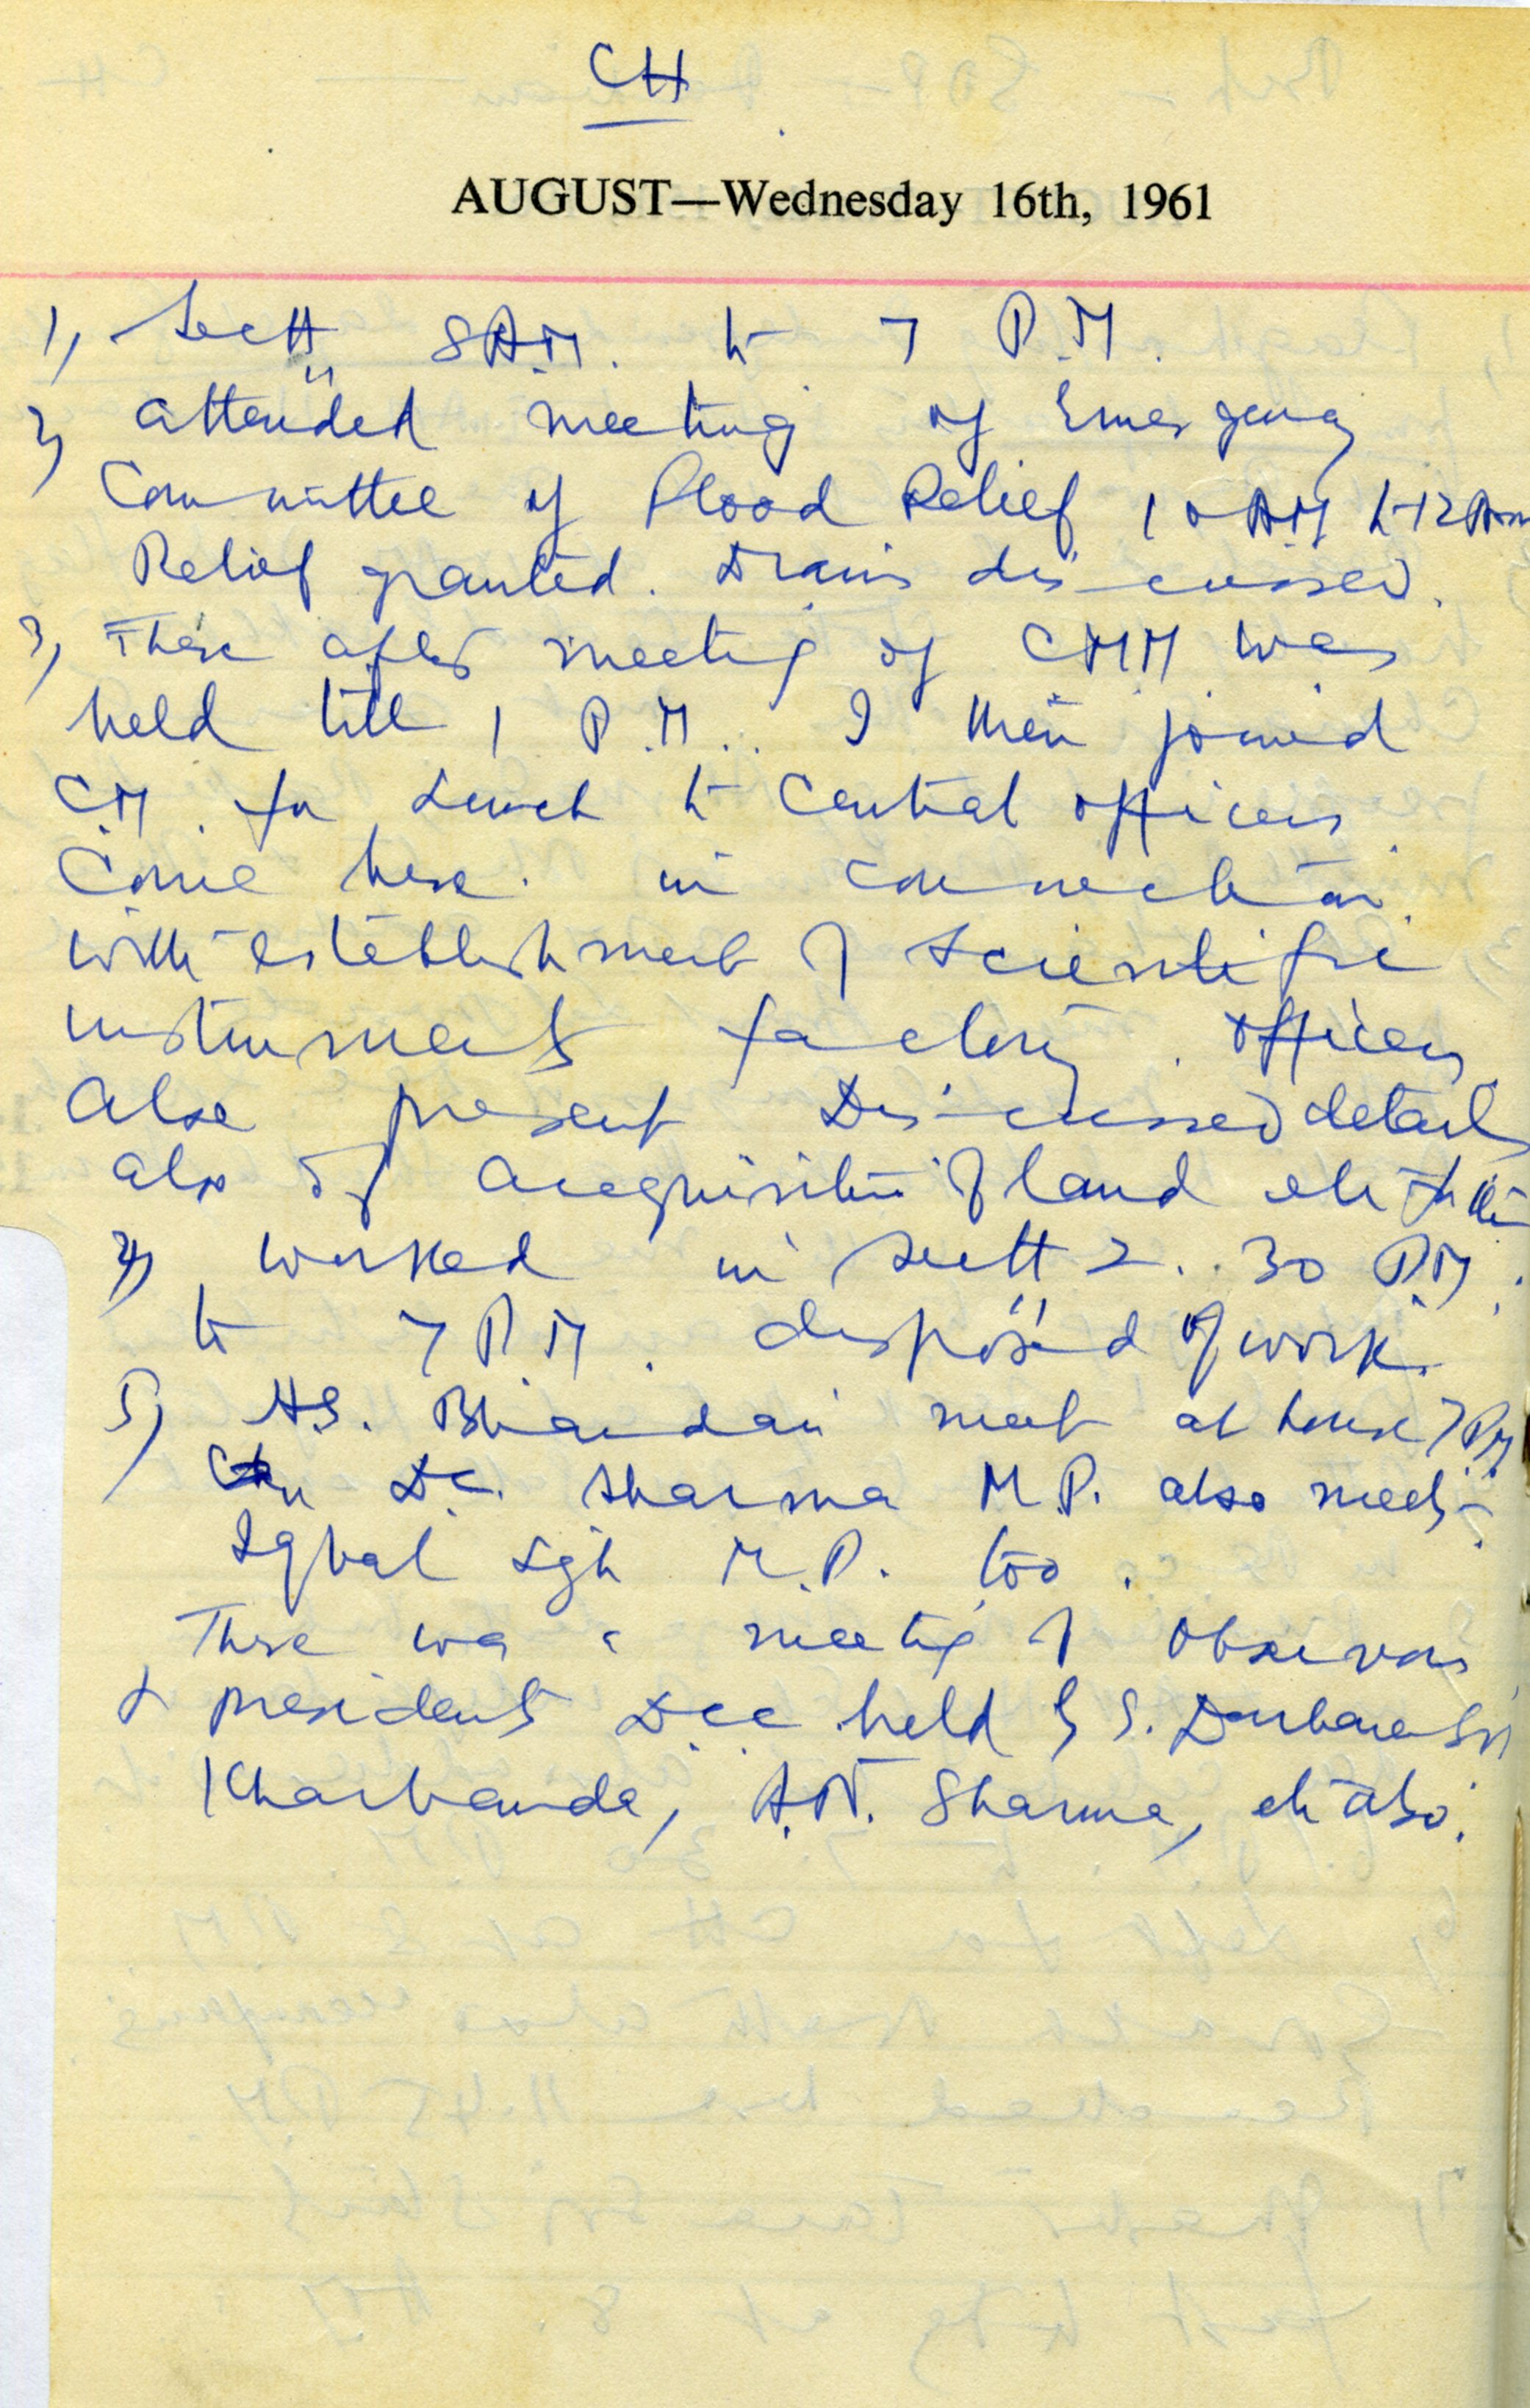 CH
AUGUST—Wednesday 16th, 1961
1, Sectt 8 AM. to 7 P.M.
2, attended meeting of Emergency
Committee of Flood Relief 10 AM to 12
Relief granted. Drains discussed.
3, There after meeting of CMM was
held till 1 P.M.. I then joined
C.M. for Lunch to Central officers
Come here. in connection
with establishment of Scientific
instruments factory. officers
also present Discussed details
also of acequisition of land etc for
4) worked in Sectt 2.. 30 P.M.
to 7 P.M. disposed of work.
5) H.S. Bhandari met at house 7 PM
D.C. Sharma M.P. also met.
Iqbal Sgh M.P. too.
There was a meeting of Observors
& presidents D.C.C. held by S. Darbara Sgh
Kharbanda, A.N. Sharma, etc also.